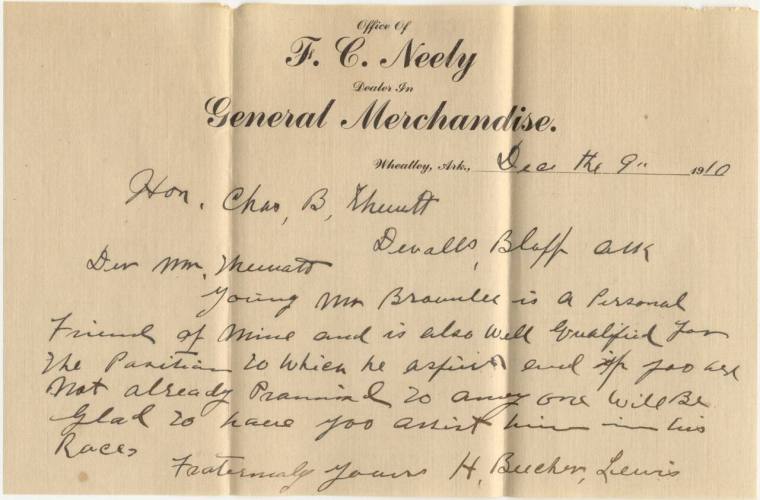 Office Of
F. C. Neely
Dealer In
General Merchandise.
Wheatley, Ark., Dec the 9" 1910
Hon. Chas, B, Thweatt
Devalls, Bluff Ark
Dear Mr. Thweatt
Young Mr Brownlee is a Personal
Friend of Mine and is also Well Qualified for
The Position to Which he aspires and if you are
Not already Promised to any one Will Be
Glad to have you assist him in his
Race,
Fraternaly Yours H, Beecher, Lewis